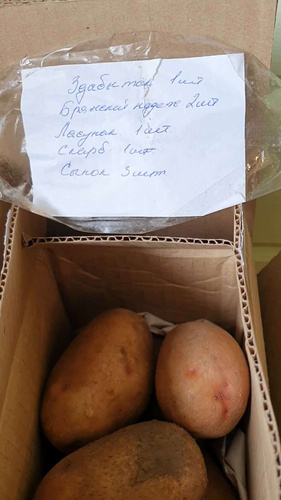 Здабыток 1 шт
Брянский надеж 2 шт
Ласунак 1 шт
Скарб 1 шт
Сынок 3 шт